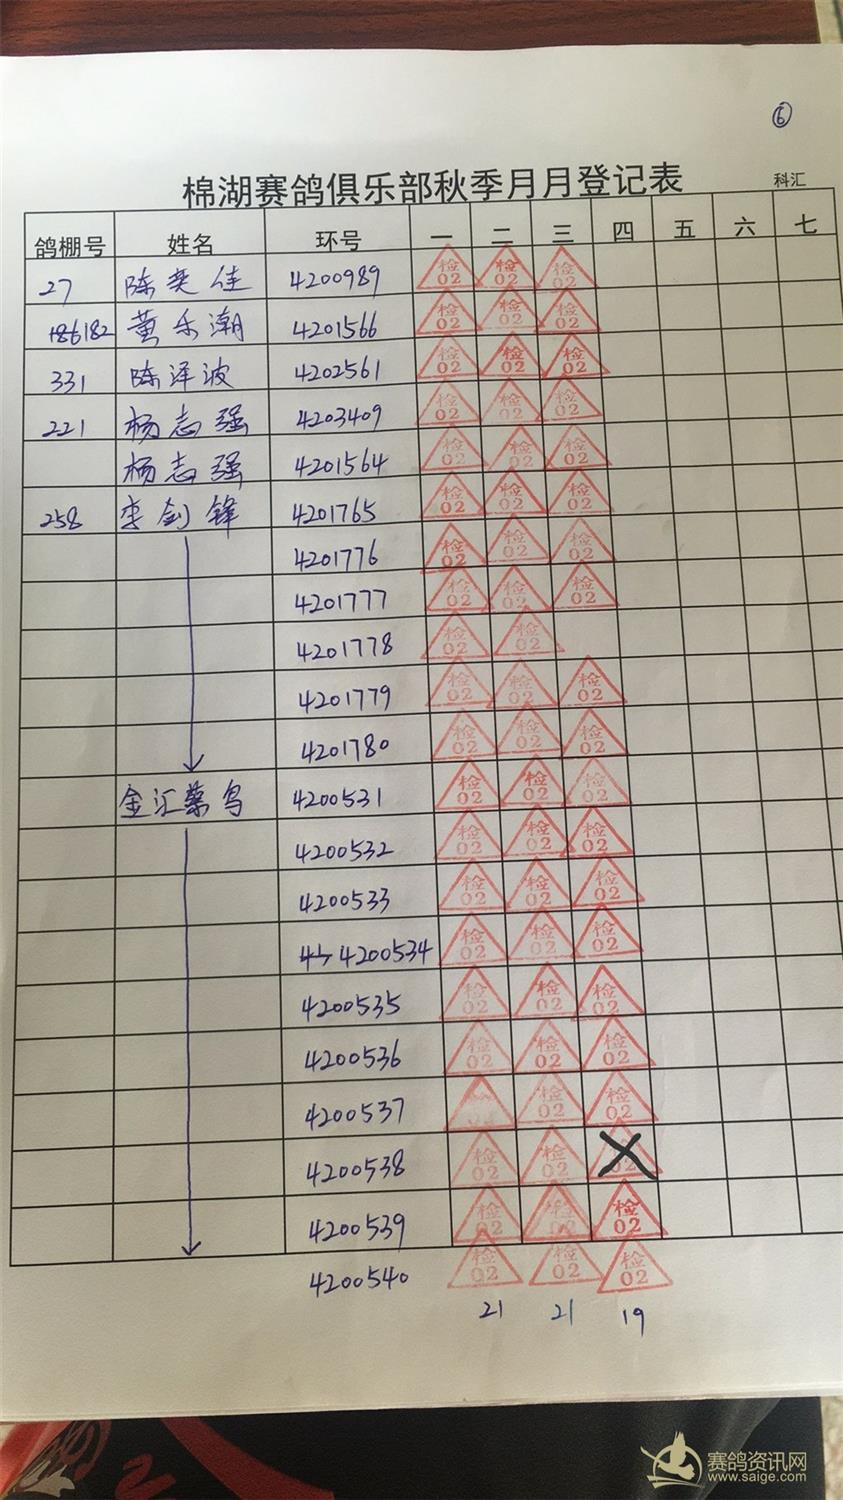 ⑥
棉湖赛鸽俱乐部秋季月月登记表
科汇
鸽棚号 姓名 环号 一 二 三 四 五 六 七
27 陈奕佳 4200989 检02 检02 检02
186182 黄乐潮 4201566 检02 检02 检02
331 陈泽波 4202561 检02 检02 检02
221 杨志强 4203409 检02 检02 检02
杨志强 4201564 检02 检02 检02
258 李剑锋 4201765 检02 检02 检02
4201776 检02 检02 检02
4201777 检02 检02 检02
4201778 检02 检02
4201779 检02 检02 检02
4201780 检02 检02 检02
金汇 鸟 4200531 检02 检02 检02
4200532 检02 检02 检02
4200533 检02 检02 检02
4200534 检02 检02 检02
4200535 检02 检02 检02
4200536 检02 检02 检02
4200537 检02 检02
4200538 检02 检02
4200539 检02 检02 检02
4200540 检02 检02 检02
21 21 19
赛鸽资讯网
www.saige.com